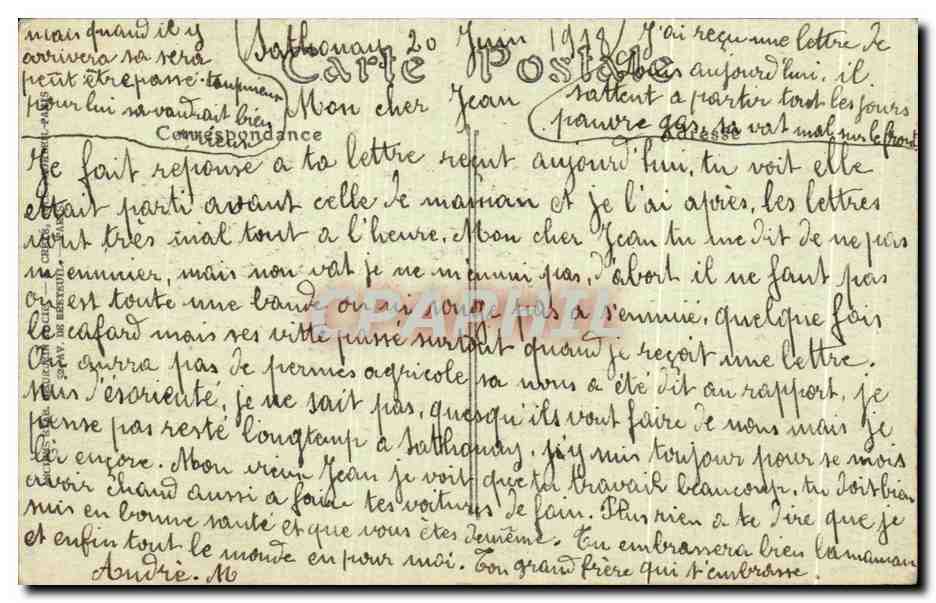 Sathonay 20 Juin 1918
Carte Postale
Mon cher Jean
Correspondance
Adresse
Je fait reponse a ta lettre reçut aujourd'hui, tu voit elle
ettait parti avant celle de maman et je l'ai après, les lettres
vont très mal tout a l'heure. Mon cher Jean tu me dit de ne pas
m'ennuier, mais non vat je ne m'ennui pas, d'abort il ne faut pas
on est toute une bande on ni songe pas a s'ennuie, quelque fois
le cafard mais ses vitte passé surtout quand je reçoit une lettre.
On aurra pas de permes agricole sa nous a été dit au rapport, je
suis d'ésorienté, je ne sait pas, quesqu'ils vont faire de nous mais je
pense pas resté longtemp a Sathonay, j'y suis toujour pour se mois
ci encore. Mon vieux Jean je voit que tu travail beaucoup, tu doit bien
avoir chaud aussi a faire tes voitures de foin. Plus rien a te dire que je
suis en bonne santé et que vous êtes de même. Tu embrassera bien la maman
et enfin tout le monde en pour moi. Ton grand frère qui t'embrasse.
André. M
J'ai reçu une lettre de
aujourd'hui, il
sattent a partir tout les jours
pauvre gas, sa vat mal sur le front
mais quand il y
arrivera sa sera
peût être passé
pour lui sa vaudrait bien
mieux
52 AV. DE
PARIS
CPARPHIL